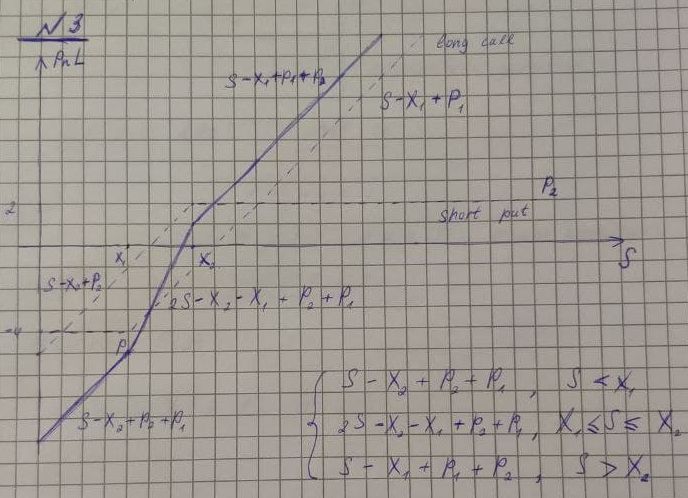 N 3
PnL
long call
S-X₁+P₁+P₂
S-X₁+P₁
P₂
2
short put
X₁
X₂
S
S-X₂+P₂
2S-X₂-X₁+P₂+P₁
-4
P₁
S-X₂+P₂+P₁
S-X₂+P₂+P₁, S<X₁
2S-X₂-X₁+P₂+P₁, X₁≤S≤X₂
S-X₁+P₁+P₂, S>X₂